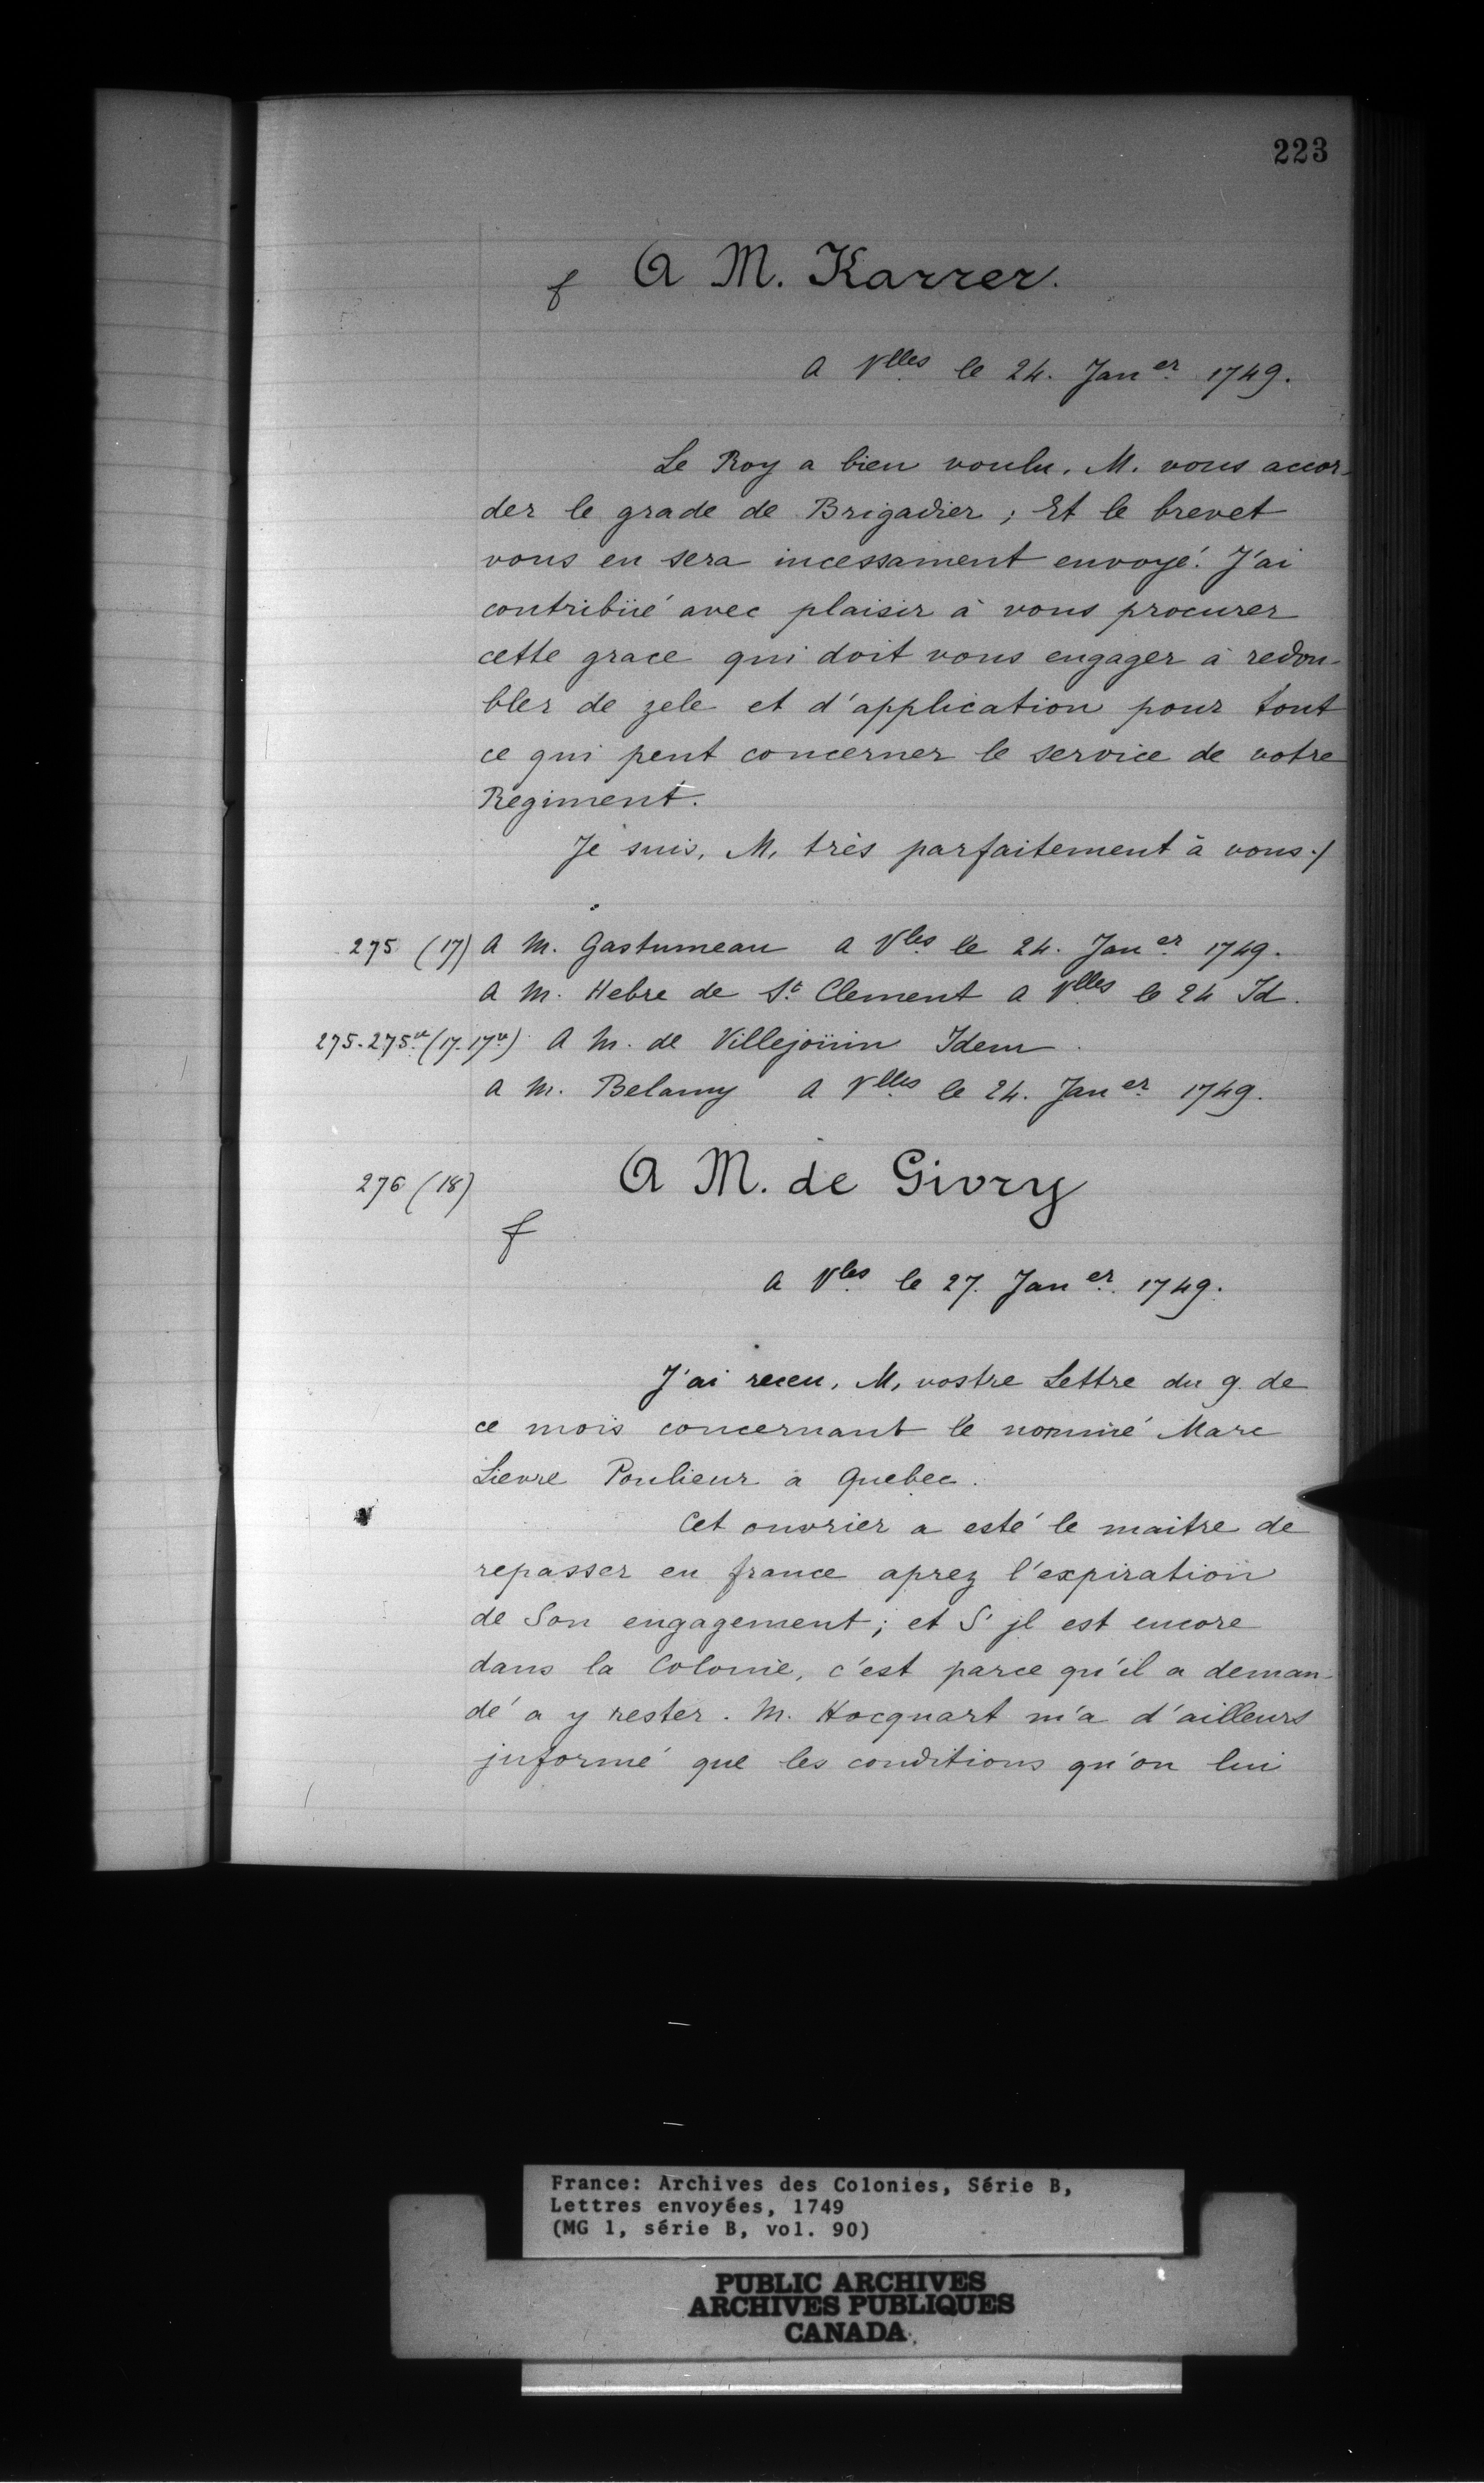 223
f A M. Karrer.
A Vlles le 24. Janer 1749.
Le Roy a bien voulu, M. vous accor-
der le grade de Brigadier ; Et le brevet
vous en sera incessament envoyé. J'ai
contribüé avec plaisir à vous procurer
cette grace qui doit vous engager à redou-
bler de zele et d'application pour tout
ce qui peut concerner le service de votre
Regiment.
Je suis, M, très parfaitement à vous ./
275 (17) A M. Gastumeau A Vles le 24. Janer 1749.
A M. Hebre de St Clement A Vlles le 24 Id.
275.275vo (17.17vo) A M. de Villejoüin Idem
A M. Belamy A Vlles le 24. Janer 1749.
276 (18) A M. de Givry
f
A Vles le 27. Janer 1749.
J'ai receu, M, vostre Lettre du 9. de
ce mois concernant le nommé Marc
Lievre Poulieur a Quebec.
Cet ouvrier a esté le maitre de
repasser en france aprez l'expiration
de Son engagement ; et S'jl est encore
dans la Colonie, c'est parce qu'il a deman-
dé a y rester. M. Hocquart m'a d'ailleurs
jnformé que les conditions qu'on lui
France: Archives des Colonies, Série B,
Lettres envoyées, 1749
(MG 1, série B, vol. 90)
PUBLIC ARCHIVES
ARCHIVES PUBLIQUES
CANADA